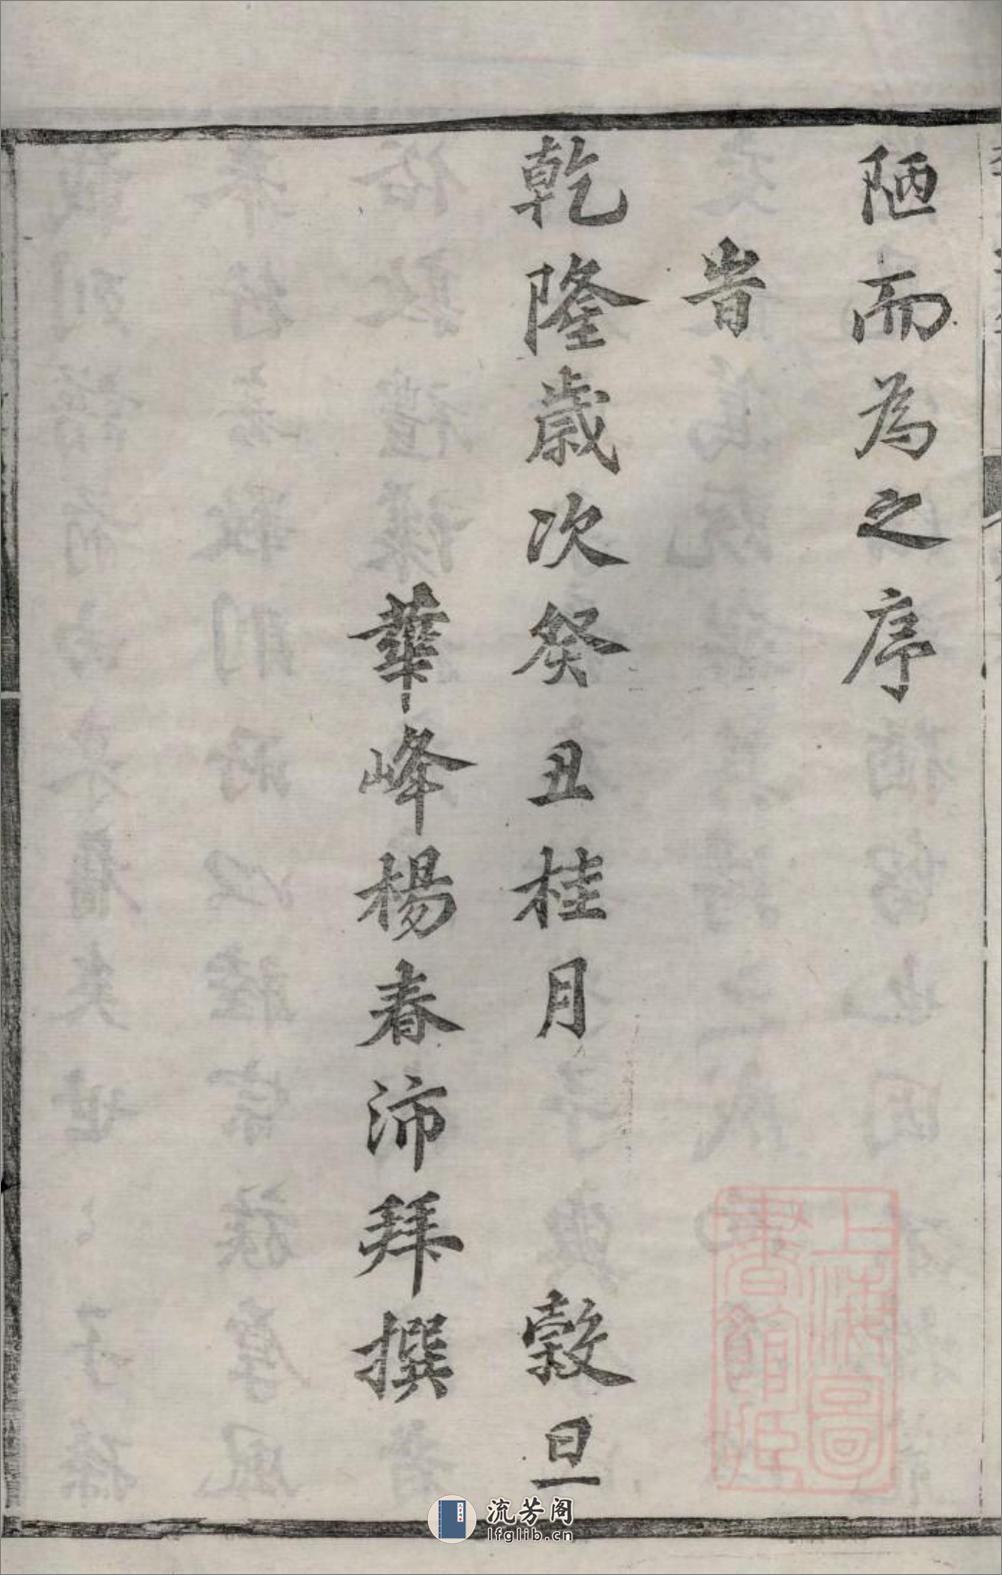 陋而為之序
旹
乾隆歲次癸丑桂月 穀旦
華峰楊春沛拜撰
上海圖
書館
流芳阁
lfglib.cn